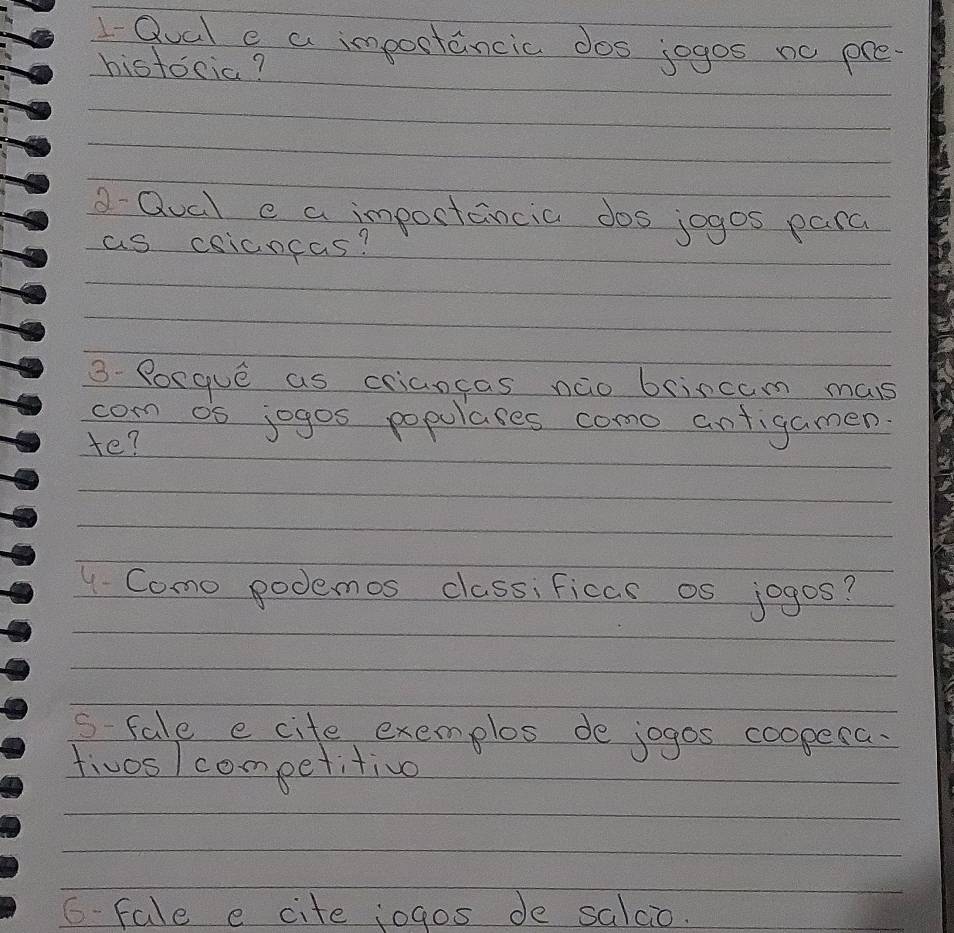 1- Qual e a importância dos jogos na pre-
história?
2- Qual e a importância dos jogos para
as crianças?
3- Porquê as crianças não brincam mais
com os jogos populares como antigamen-
te?
4- Como podemos classificar os jogos?
5- fale e cite exemplos de jogos coopera-
tivos / competitivo
6- Fale e cite jogos de salão.